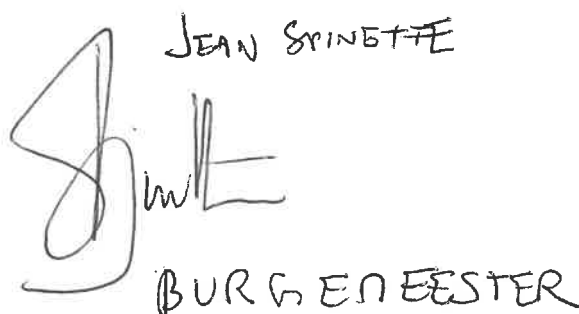 JEAN SPINETTE
BURGEMEESTER